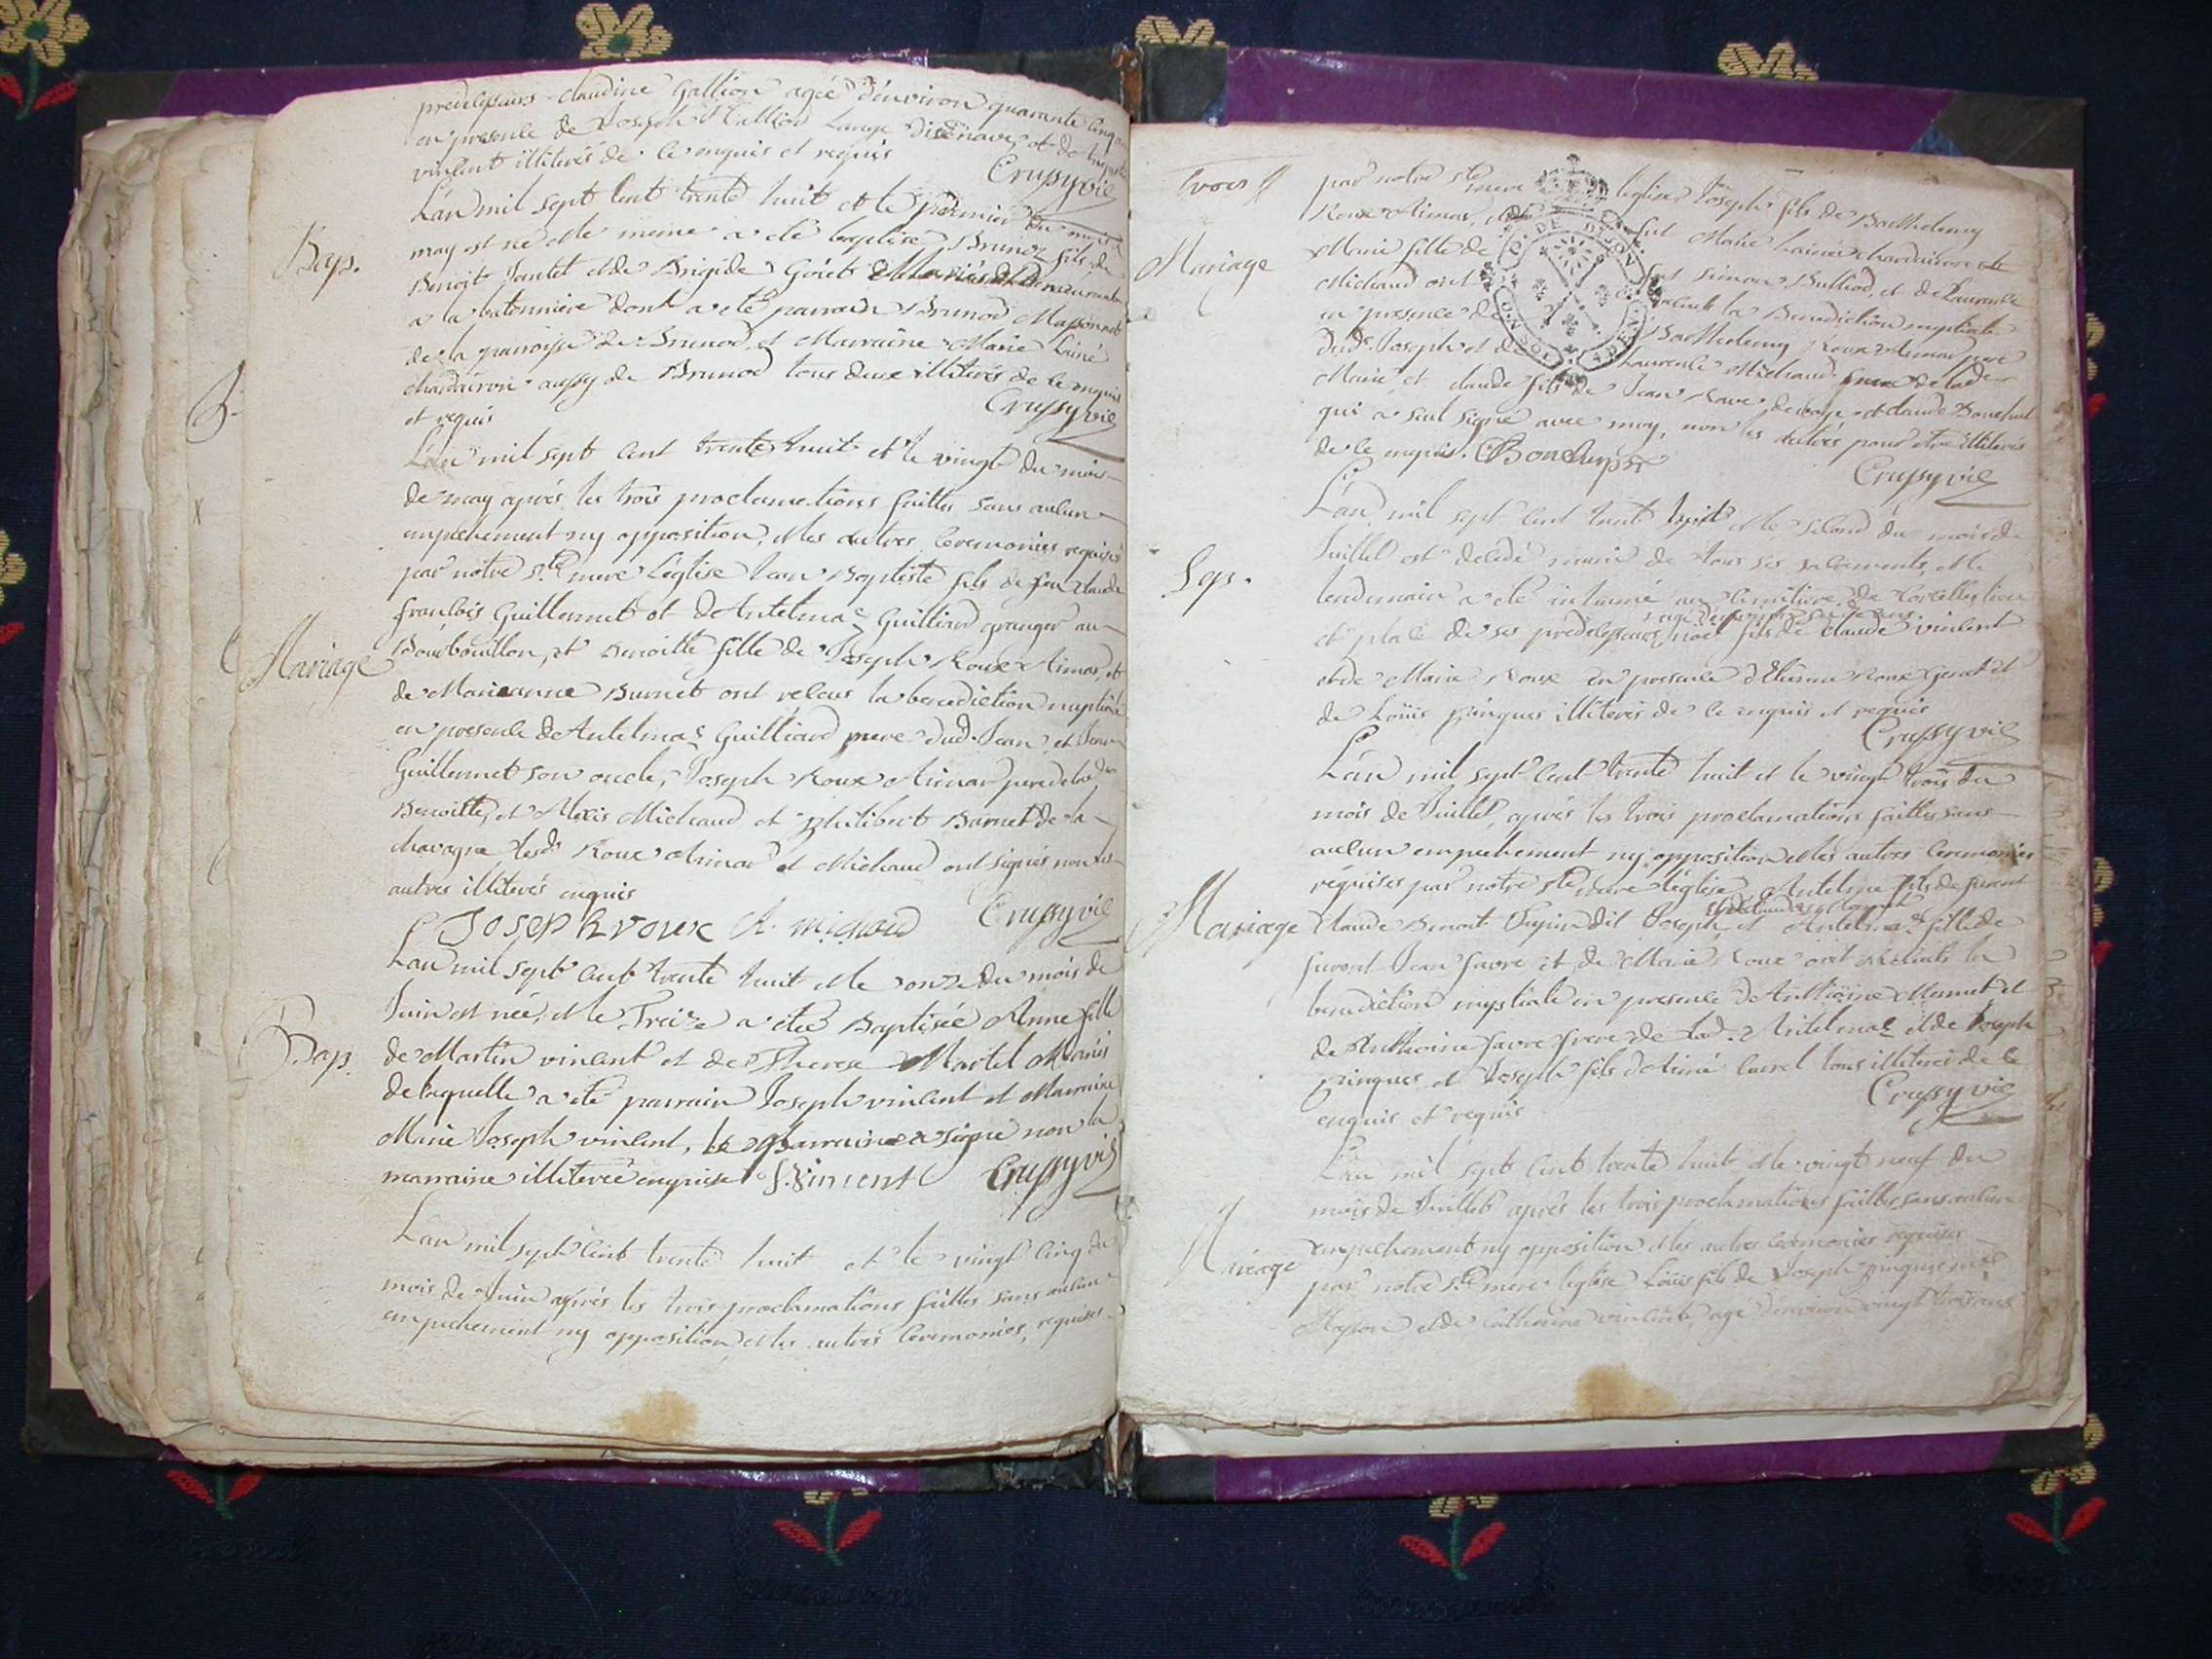 predecesseurs claudine Gallion agée d'environ quarante cinq
en presence de Joseph Lange et de
vincent illiterés de ce enquis et requis
Crussy vic
Bap.
L'an mil sept cent trente huit et le premier du mois de
may est né et le meme a été baptisé Brunod fils de
Benoit Jantet et de Brigide Goiet Mariés
a la batonniere dont a été parrain Brunod Massonnet
de la parroisse de Brunod, et Marraine Marie Lainé
chardairon aussy de Brunod tous deux illiterés de ce enquis
et requis
Crussy vic
Mariage
L'an mil sept cent trente huit et le vingt du mois
de may aprés les trois proclamations faittes sans aucun
empechement ny opposition, et les autres Ceremonies requises
par notre ste mere L'église Jean Baptiste fils de feu claude
françois Guillermet et de Antelmaz Guilliard granger au
Bourbouillon, et Benoitte fille de Joseph Roux Aimar, et
de Marieanne Burnet ont receus la benediction nuptiale
en presence de Antelmaz Guilliard mere dud. Jean, et Jean
Guillermet son oncle, Joseph Roux Aimar pere de lad.
Benoitte, et Alexis Michaud et philibert Burnet de la
chavagne lesd. Roux Aimar et Michaud ont signés non les
autres illiterés enquis
JOSEPh Rroux A. michaud Crussy vic
Bap.
L'an mil sept cent trente huit et le onze du mois de
Juin est née, et le Treize a étée Baptisée Anne fille
de Martin vincent et de Therese Martel Mariés
de laquelle a été parrain Joseph vincent et Marraine
Marie Joseph vincent, le Parrain a signé non la
marraine illiterée enquise J. Vincent Crussy vic
L'an mil sept cent trente huit et le vingt cinq du
mois de Juin aprés les trois proclamations faittes sans aucun
empechement ny opposition, et les autres Ceremonies requises
Trois
Mariage
par notre ste mere l'église, Joseph fils de Barthelemy
Roux Aimar, et de fut Marie Lainé chardairon et
Marie fille de fut Simon Bulliod, et de Laurence
Michaud ont receus la Benediction nuptiale
en presence de Barthelemy Roux Aimar pere
dud. Joseph et de Laurence Michaud mere de lad.
Marie et claude fils de Jean Rave et claude Bonchur
qui a seul signé avec moy, non les autres pour etre illiterés
de ce enquis. CBonchurpst
Crussy vic
Sep.
L'an mil sept cent trente huit et le second du mois de
Juillet est decedé muni de tous ses sacrements, et le
lendemain a été inhumé au cimitiere de Corcelles lieu
et place de ses predecesseurs noel fils de claude vincent
et de Marie Roux en presence d'Etienne Roux Genet et
de Loüis pinques illiterés de ce enquis et requis
Crussy vic
Mariage
L'an mil sept cent trente huit et le vingt trois du
mois de Juillet, aprés les trois proclamations faittes sans
aucun empechement ny opposition et les autres Ceremonies
requises par notre ste mere l'église, Antelme fils de furent
claude Benoit Pupin dit Joseph, et Antelmaz fille de
furent Jean favre et de Marie Roux ont receus la
benediction nuptiale en presence de Anthoine Mermet et
de Anthoine favre frere de lad. Antelmaz et de Joseph
pinques et Joseph fils d'Aimé tous illiterés de ce
enquis et requis
Crussy vic
Mariage
L'an mil sept cent trente huit et le vingt neuf du
mois de Juillet aprés les trois proclamations faittes sans aucun
empechement ny opposition et les autres ceremonies requises
par notre Ste mere leglise Loüis fils de Joseph pinques
et de Catherine vincent agé d'environ vingt trois ans